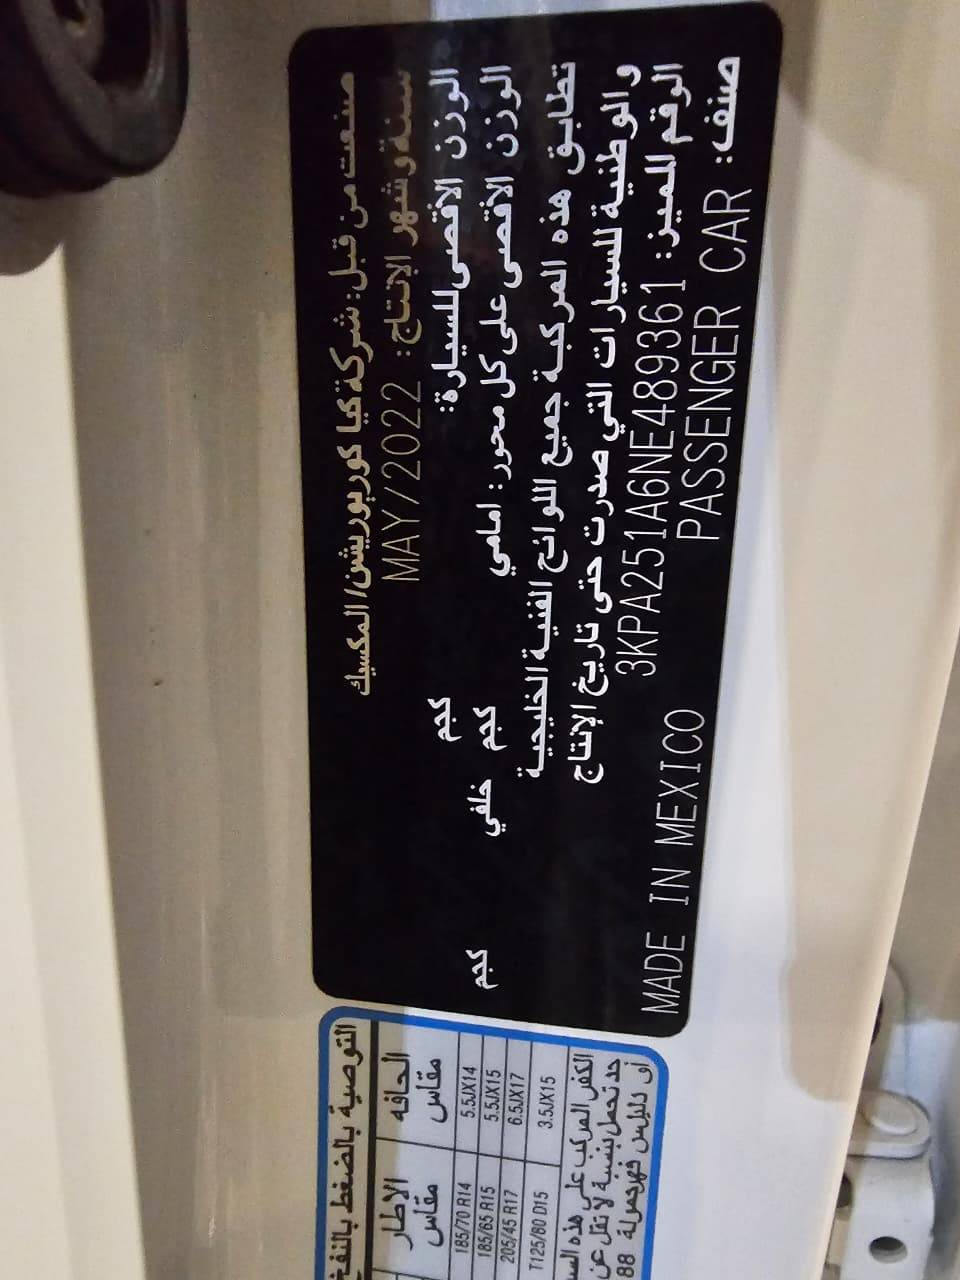 صنعت من قبل: شركة كيا كوربوريشن/ المكسيك
سنة وشهر الإنتاج: MAY/2022
الوزن الاقصى للسيارة: كجم
الوزن الاقصى على كل محور: امامي كجم خلفي كجم
تطابق هذه المركبة جميع اللوائح الفنية الخليجية
والوطنية للسيارات التي صدرت حتى تاريخ الإنتاج
الرقم المميز: 3KPA251A6NE489361
صنف: PASSENGER CAR MADE IN MEXICO
التوصية بالضغط بالنفخ
مقاس الاطار مقاس الحافه
185/70 R14 5.5JX14
185/65 R15 5.5JX15
205/45 R17 6.5JX17
T125/80 D15 3.5JX15
الكفر المركب على هذه
حد تحمل بنسبة لا تقل عن
88 أو دليلس فهرحمولة